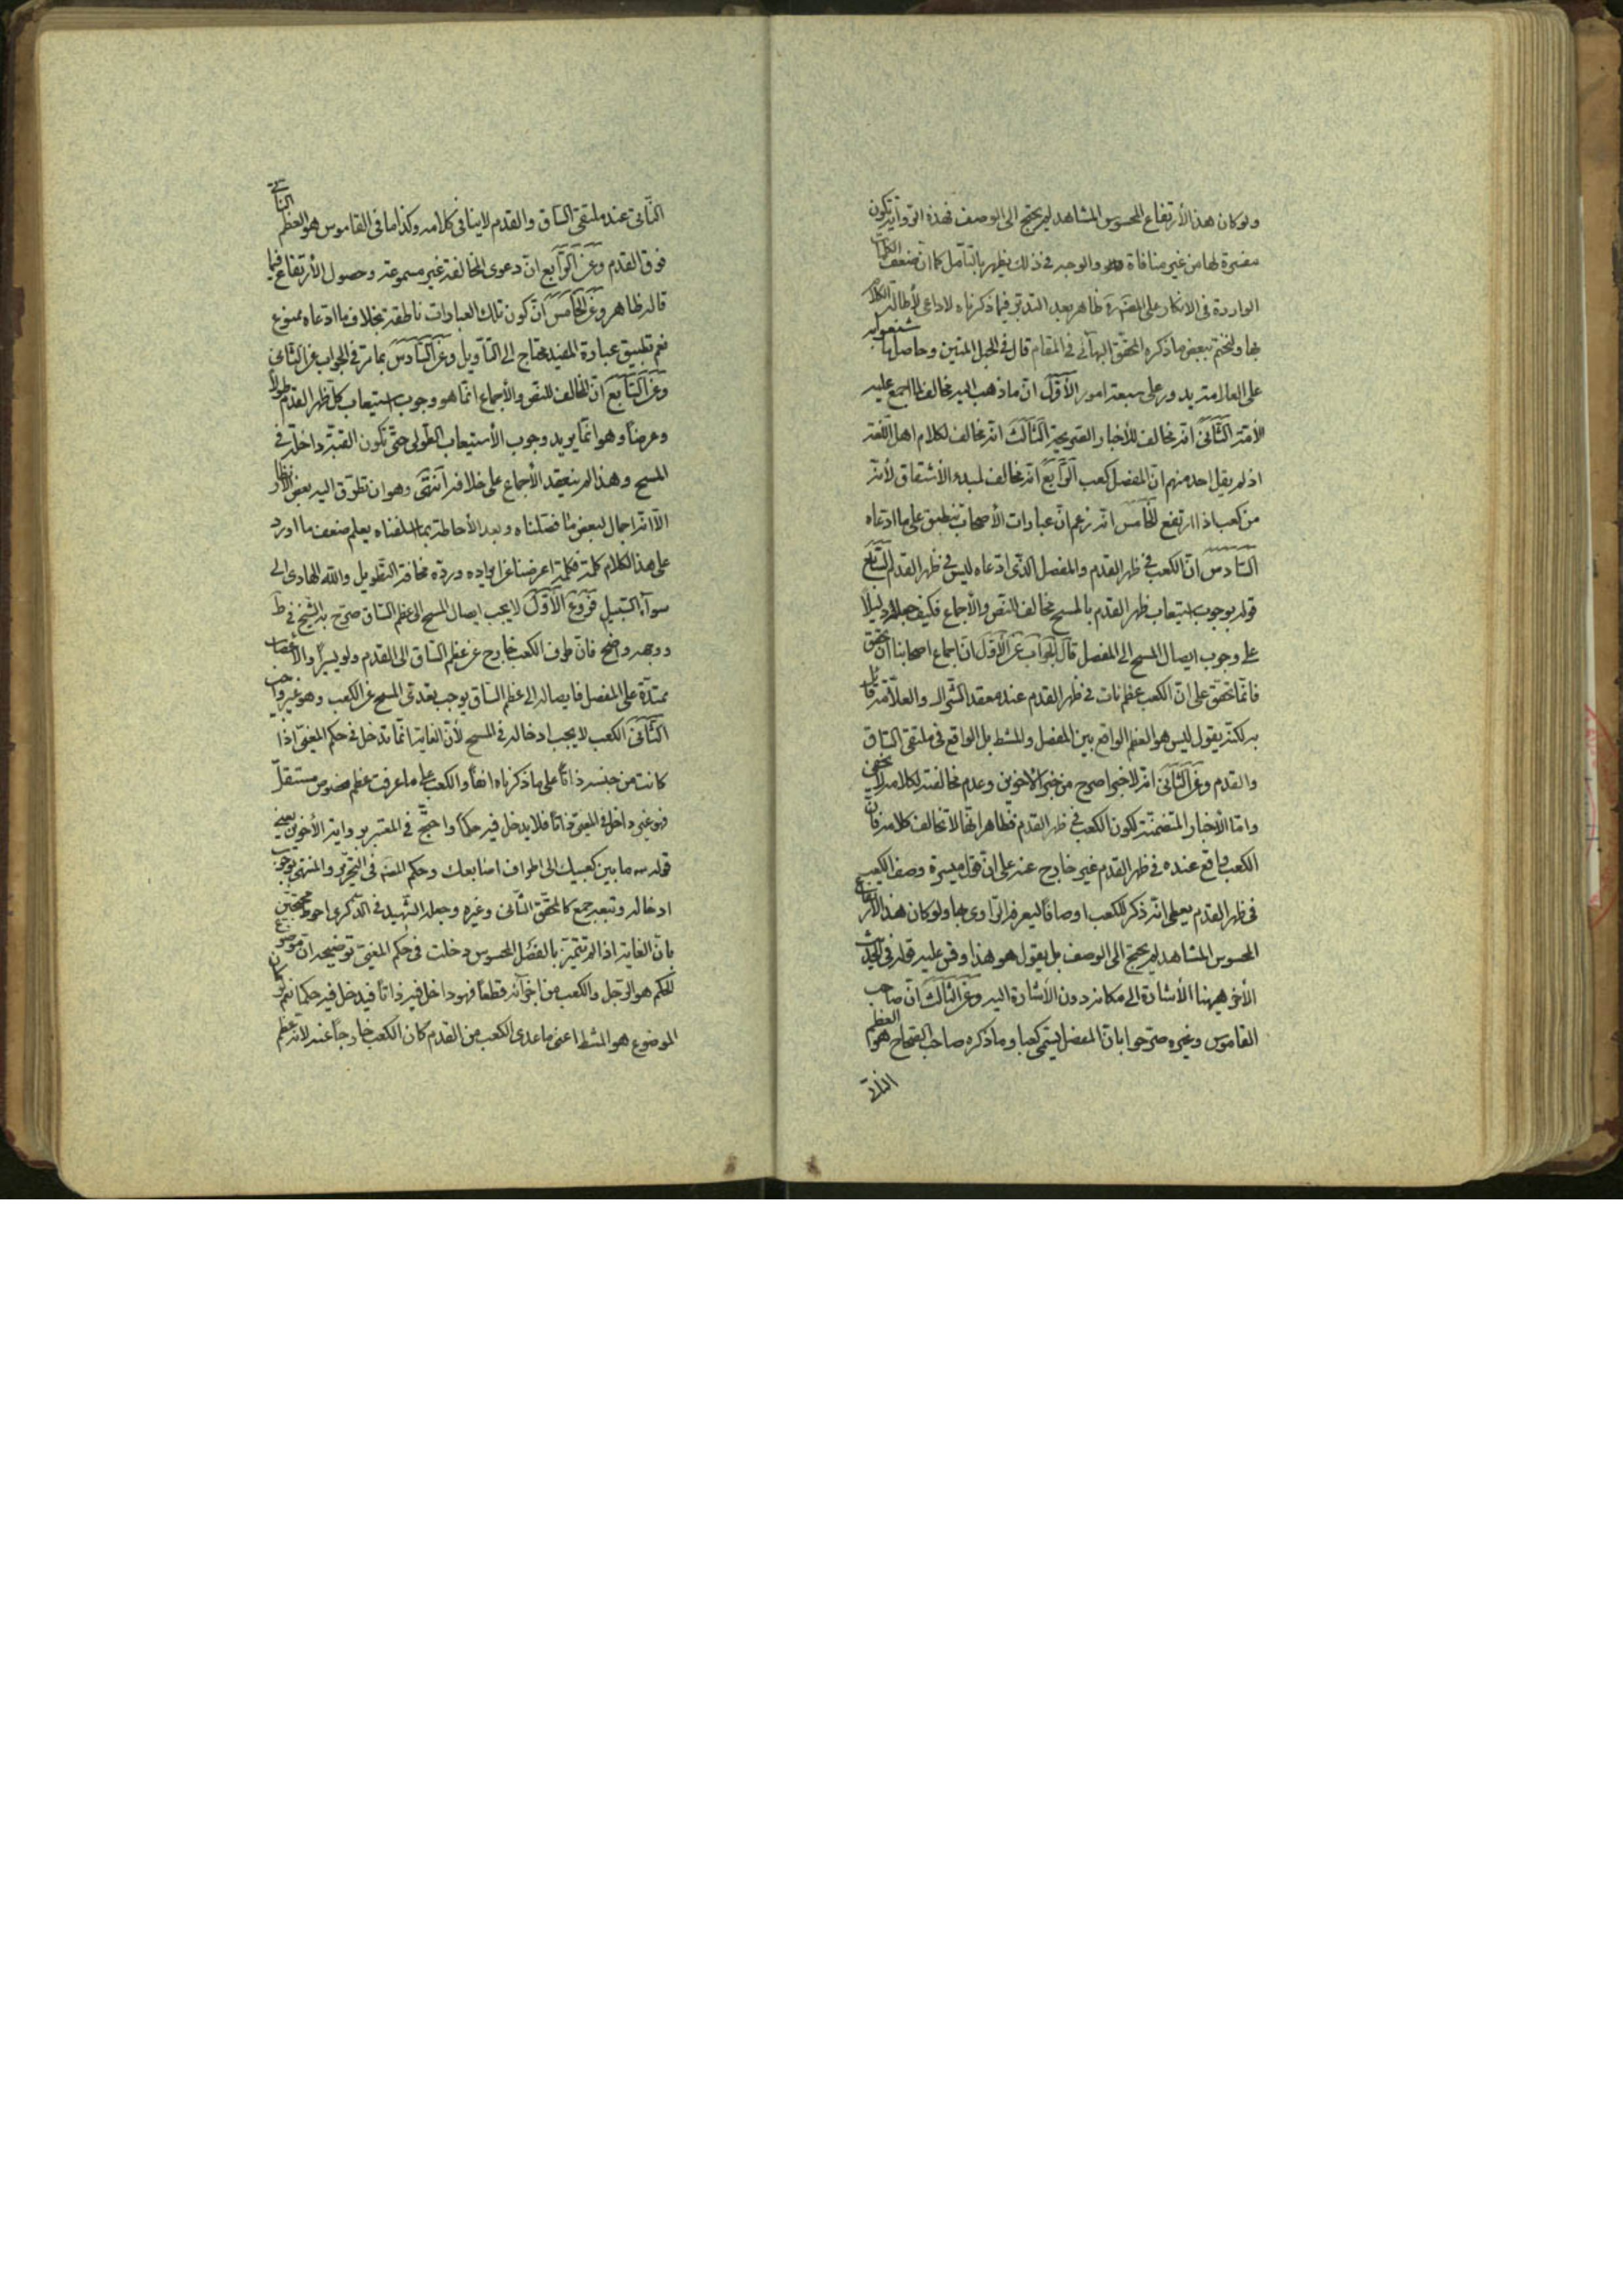 ولو كان هذا الأرتفاع المحسوس المشاهد لم يحتج الى الوصف فهذه الرواية تكون
مفسرة لها من غير منافاة والوجه في ذلك يظهر بالتأمل كما ان ضعف الكلمات
الواردة في الانكار على المصنف ره ظاهر بعد التدبر فيما ذكرناه لا داعي لأطالة الكلام
بها ولنختم ببعض ما ذكره المحقق البهائي في المقام قال في الحبل المتين وحاصل ما شنعوا به
على العلامة يدور على سبعة امور الأوّل انّ ما ذهب اليه مخالف لما اجمع عليه
الأمة الثّاني انّه مخالف للأخبار الصريحة الثّالث انّه مخالف لكلام اهل اللغة
اذ لم يقل احد منهم انّ المفصل كعب الرّابع انّه مخالف لمبدء الأشتقاق لأنّه
من كعب اذا ارتفع الخامس انّه زعم انّ عبارات الأصحاب تنطبق على ما ادعاه
السّادس انّ الكعب في ظهر القدم والمفصل الّذى ادّعاه ليس في ظهر القدم السّابع
قوله بوجوب استيعاب ظهر القدم بالمسح مخالف للنّص والأجماع فكيف جعله دليلا
على وجوب ايصال المسح الى المفصل قال الجواب عن الأوّل انّ اجماع اصحابنا ان تحقق
فانّما تحقّق على انّ الكعب عظم نات في ظهر القدم عند معقد الشّراك والعلّامة قائل
به لكنّه يقول ليس هو العظم الواقع بين المفصل والمشط بل الواقع في ملتقى السّاق
والقدم وعن الثّاني انّه لا خبر اصرح من خبر الأخوين وعدم مخالفته لكلامه لا يخفى
وامّا الأخبار المتضمنّة لكون الكعب في ظهر القدم فظاهر انّها لا تخالف كلامه فانّ
الكعب واقع عنده في ظهر القدم غير خارج عنه على انّ قول ميسرة وصف الكعب
في ظهر القدم يعطي انّه ذكر للكعب اوصافا ليعرفه الرّاوي بها ولو كان هذا الأرتفاع
المحسوس المشاهد لم يحتج الى الوصف بل يقول هو هذا وقس عليه قوله في الحديث
الأخر هيهنا الأشارة الى مكانه دون الأشارة اليه وعن الثّالث انّ صاحب
القاموس وغيره صرّحوا بانّ المفصل يسمّى كعبا وما ذكره صاحب الصّحاح هو العظم
الناتى
النّاتى عند ملتقى السّاق والقدم لا ينافي كلامه وكذا ما في القاموس هو العظم الناتى
فوق القدم وعن الرّابع انّ دعوى المخالفة غير مسموعة وحصول الأرتفاع فيما
قاله ظاهر وعن الخامس انّ كون تلك العبارات ناطقة بخلاف ما ادّعاه ممنوع
نعم تطبيق عبارة المفيد محتاج الى التّاويل وعن السّادس بما مرّ في الجواب عن الثّاني
وعن السّابع انّ المخالف للنّص والأجماع انّما هو وجوب استيعاب كلّ ظهر القدم طولاً
وعرضاً وهو انّما يريد وجوب الأستيعاب الطّولى حتّى تكون القبّة داخلة في
المسح وهذا لم ينعقد الأجماع على خلافه انتهى وهو ان تطرّق اليه بعض الأنظار
الّا انّه اجمال لبعض ما فصّلناه وبعد الأحاطة بما اسلفناه يعلم ضعف ما اورد
على هذا الكلام كلمة فكلمة اعرضنا عن ايراده وردّه مخافة التّطويل والله الهادى الى
سواء السّبيل فروع الأوّل لا يجب ايصال المسح الى عظم السّاق صرّح به الشّيخ في ط
ووجهه واضح فانّ طرف الكعب خارج عن عظم السّاق الى القدم ولو يسيراً والأعصاب
ممتدّة على المفصل فايصاله الى عظم السّاق يوجب تعدّى المسح عن الكعب وهو غير واجب
الثّاني الكعب لا يجب ادخاله في المسح لأنّ الغاية انّما تدخل في حكم المغيّى اذا
كانت من جنسه ذاتاً على ما ذكرناه انفاً والكعب على ما عرفت عظم مخصوص مستقلّ
فهو غير داخل في المغيّى ذاتاً فلا يدخل فيه حكماً واحتجّ في المعتبر برواية الأخوين يعنى
قوله ما بين كعبيك الى اطراف اصابعك وحكم المصنف في التحرير والمنتهى بوجوب
ادخاله وتبعه جمع كالمحقّق الثّاني وغيره وجعله الشّهيد في الذّكرى احوط محتجّين
بانّ الغاية اذا لم تتميّز بالفصل المحسوس دخلت في حكم المغيّى توضيحه انّ موضوع
الحكم هو الرّجل والكعب من اجزائه قطعاً فهو داخل فيه ذاتاً فيدخل فيه حكما نعم لو كان
الموضوع هو المشط اعنى ما عدى الكعب من القدم كان الكعب خارجاً عنه لانّه عظم